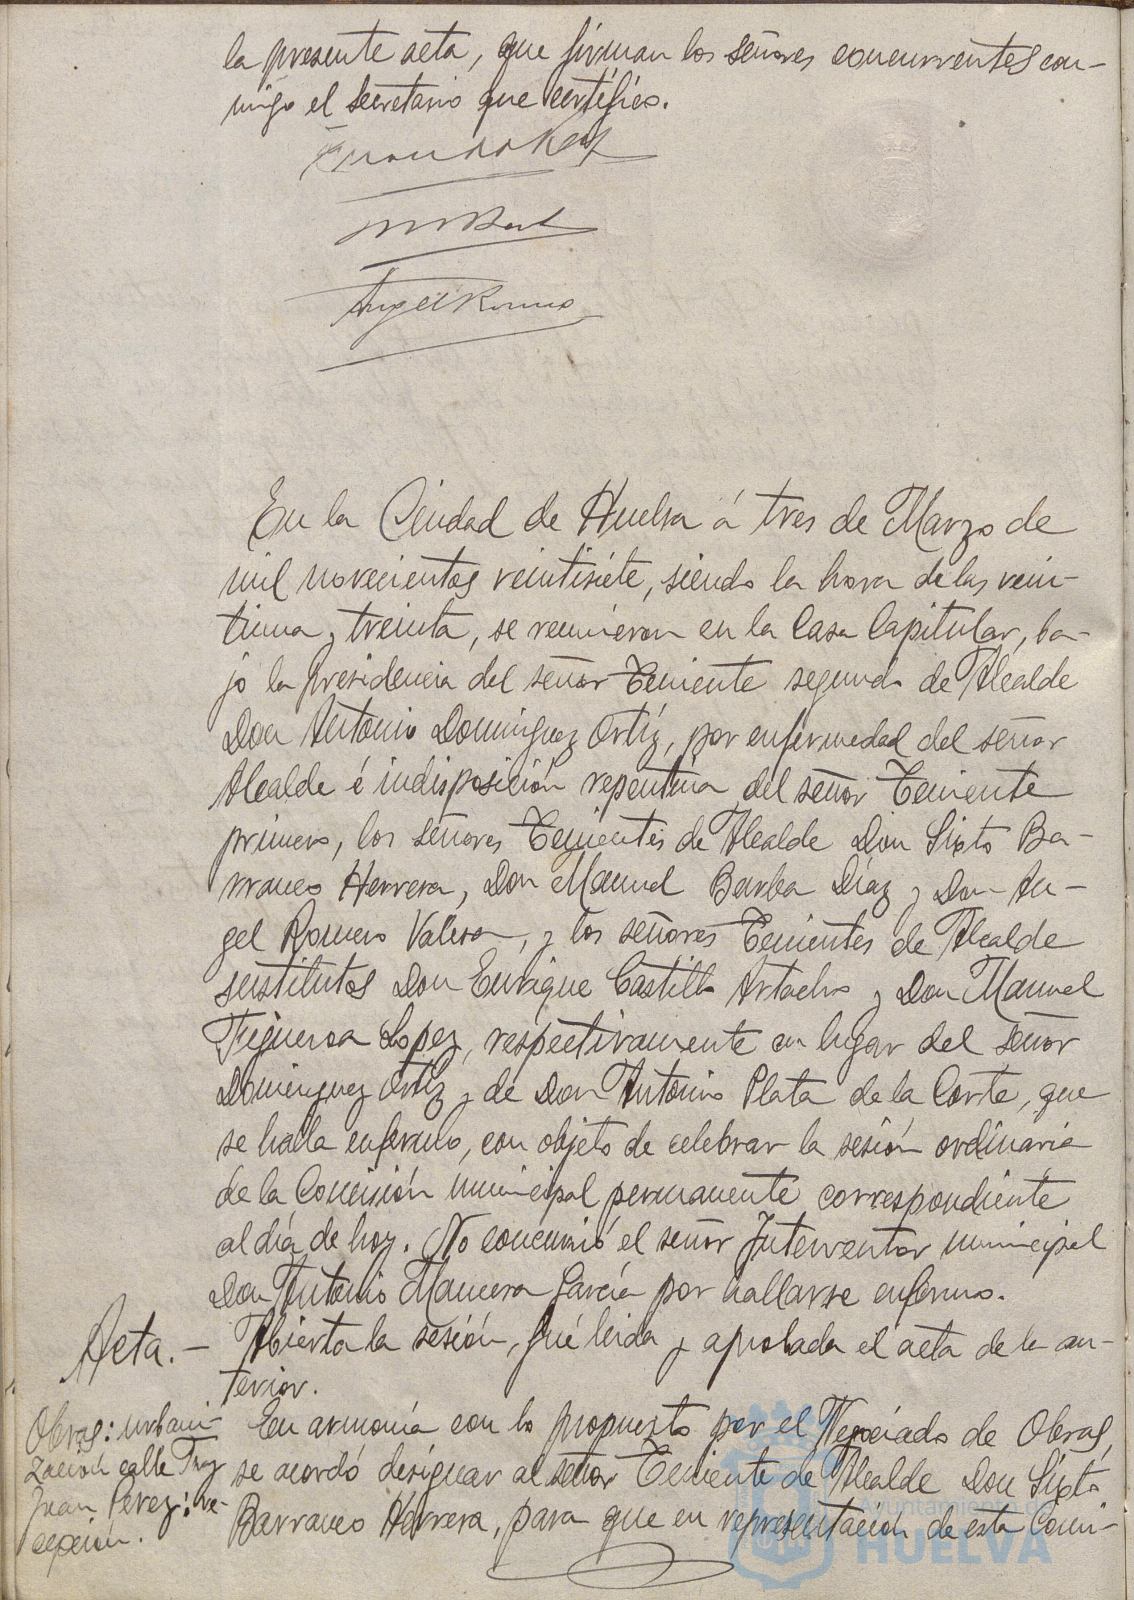 la presente acta, que firman los señores concurrentes con-
migo el Secretario que certifico.
M Barba
Angel Romero
En la Ciudad de Huelva á tres de Marzo de
mil novecientos veintisiete, siendo la hora de las vein-
tiuna y treinta, se reunieron en la Casa Capitular, ba-
jo la presidencia del señor Teniente segundo de Alcalde
Don Antonio Dominguez Ortíz, por enfermedad del señor
Alcalde é indisposición repentina del señor Teniente
primero, los señores Tenientes de Alcalde Don Sixto Ba-
rranco Herrera, Don Manuel Barba Díaz y Don An-
gel Romero Valiera, y los señores Tenientes de Alcalde
sustitutos Don Enrique Castilla Artacho y Don Manuel
Figueroa Lopez, respectivamente en lugar del señor
Dominguez Ortíz y de Don Antonio Plata de la Corte, que
se halla enfermo, con objeto de celebrar la sesión ordinaria
de la Comisión municipal permanente correspondiente
al día de hoy. No concurrió el señor Interventor municipal
Don Antonio Mancera García por hallarse enfermo.
Acta.- Abierta la sesión, fué leida y aprobada el acta de la an-
terior.
Obras: urbani-
zación calle Fray
Juan Pérez: re-
cepción.
En armonía con lo propuesto por el Negociado de Obras,
se acordó designar al señor Teniente de Alcalde Don Sixto
Barranco Herrera, para que en representación de esta Comi-
Ayuntamiento de
HUELVA